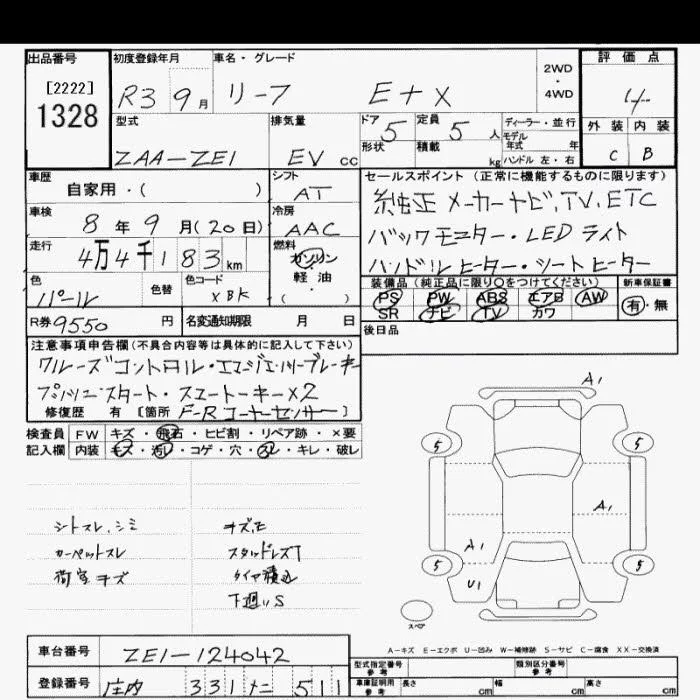 出品番号 初度登録年月 車名・グレード 2WD・4WD 評価点
[2222]
1328
R3 9月 リーフ E+X 4
型式 排気量 ドア 定員 ディーラー・並行 外装 内装
5 5人 モデル年式 年
形状 積載 kg ハンドル 左・右
ZAA-ZE1 EV cc C B
車歴 シフト セールスポイント (正常に機能するものに限ります)
自家用・( ) AT 純正メーカーナビ,TV,ETC
車検 冷房
8年9月(20日) AAC バックモニター・LEDライト
走行 燃料
4万4千183km ガソリン ハンドルヒーター・シートヒーター
軽・油
・( )
色 色替 色コード 装備品 (純正品に限り○をつけてください) 新車保証書
パール XBK PS PW ABS エアB AW 有・無
SR ナビ TV カワ
R券 9550円 名変通知期限 月 日 後日品
注意事項申告欄 (不具合内容等は具体的に記入して下さい)
クルーズコントロール・エマージェンシーブレーキ
プッシュスタート・スマートキーX2
修復歴 有 [箇所 F-Rコーナーセンサー]
検査員 FW キズ・飛石・ヒビ割・リペア跡・×要
記入欄 内装 キズ・汚レ・コゲ・穴・スレ・キレ・破レ
A1
5 5
A1
A1
5 5
U1
シートスレ,シミ
カーペットスレ
荷室キズ
スタッドレスT
タイヤ積込
下廻りS
スペア
A-キズ E-エクボ U-凹み W-補修跡 S-サビ C-腐食 XX-交換済
車台番号 ZE1-124042
型式指定番号 参考 類別区分番号 参考
登録番号 庄内 331 ナニ 511
車庫証明用 参考 長さ cm 幅 cm 高さ cm